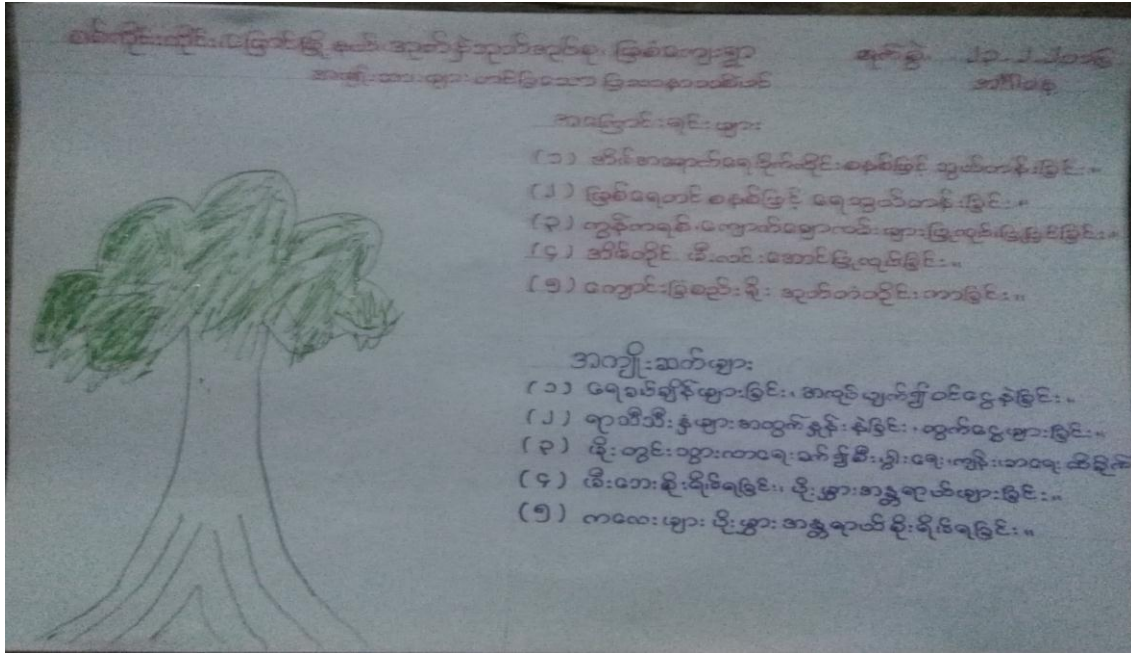 စစ်ကိုင်းတိုင်း၊ မြို့နယ်၊ အုပ်စု၊ ကျေးရွာ
ရက်စွဲ၊
အမျိုးသားများ တင်ပြသော ပြဿနာသစ်ပင်
အင်္ဂါနေ့
အကြောင်းရင်းများ
(၁) အိမ်အရောက်ရေပိုက်လိုင်းစနစ်ဖြင့် သွယ်တန်းခြင်း။
(၂) မြစ်ရေတင်စနစ်ဖြင့် ရေသွယ်တန်းခြင်း။
(၃) ကွန်ကရစ်၊ကျောက်ချောလမ်းများပြုလုပ်၊ပြုပြင်ခြင်း။
(၄) အိမ်တိုင်း မီးလင်းအောင်ပြုလုပ်ခြင်း။
(၅) ကျောင်းခြံစည်းရိုး အုတ်တံတိုင်းကာခြင်း။
အကျိုးဆက်များ
(၁) ရေခပ်ချိန်များခြင်း၊ အလုပ်ပျက်၍ ဝင်ငွေနဲခြင်း။
(၂) ရာသီသီးနှံများအထွက်နှုန်းနဲခြင်း၊ ထွက်ငွေများခြင်း။
(၃) မိုးတွင်းသွားလာရေးခက်၍စီးပွါးရေး၊ကျန်းမာရေး ထိခိုက်
(၄) မီးဘေးစိုးရိမ်ရခြင်း၊ ပိုးမွှားအန္တရာယ်များခြင်း။
(၅) ကလေးများ ပိုးမွှားအန္တရာယ်စိုးရိမ်ရခြင်း။